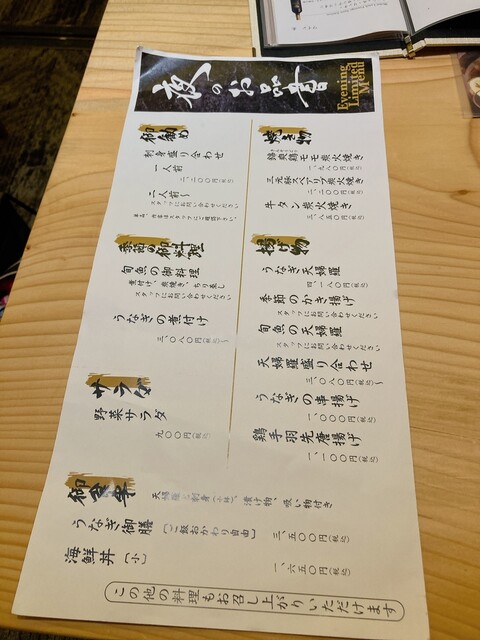 夜のお品書
Evening
Limited
Menu
御勧め
刺身盛り合わせ
一人前
二、二〇〇円(税込)
二人前〜
スタッフにお問い合わせください
季節の御料理
旬魚の御料理
煮付け、炭焼き、ちり蒸し
スタッフにお問い合わせください
うなぎの煮付け
三、〇八〇円(税込)〜
サラダ
野菜サラダ
九〇〇円(税込)
焼き物
錦爽鶏モモ炭火焼き
一、九八〇円(税込)
三元豚スペアリブ炭火焼き
二、二〇〇円(税込)
牛タン炭火焼き
三、八五〇円(税込)
揚げ物
うなぎ天婦羅
四、一八〇円(税込)
季節のかき揚げ
スタッフにお問い合わせください
旬魚の天婦羅
スタッフにお問い合わせください
天婦羅盛り合わせ
三、〇八〇円(税込)〜
うなぎの串揚げ
一、〇〇〇円(税込)
鶏手羽先唐揚げ
一、一〇〇円(税込)
御食事
天婦羅と刺身(小鉢)、漬け物、吸い物付き
うなぎ御膳
〔ご飯おかわり自由〕
三、五〇〇円(税込)
海鮮丼〔小〕
一、六五〇円(税込)
この他の料理もお召し上がりいただけます